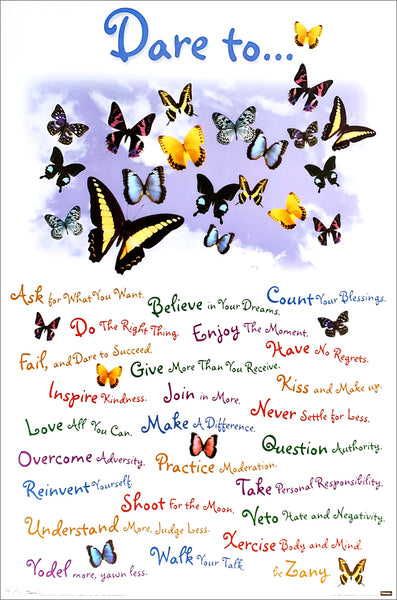 Dare to...
Ask for What You Want.
Believe in Your Dreams.
Count Your Blessings.
Do The Right Thing.
Enjoy The Moment.
Fail, and Dare to Succeed.
Give More Than You Receive.
Have No Regrets.
Inspire Kindness.
Join in More.
Kiss and Make up.
Love All You Can.
Make A Difference.
Never Settle for Less.
Overcome Adversity.
Practice Moderation.
Question Authority.
Reinvent Yourself.
Shoot For the Moon.
Take Personal Responsibility.
Understand More, Judge Less.
Veto Hate and Negativity.
Walk Your Talk
Xercise Body and Mind.
Yodel more, yawn less.
be Zany.